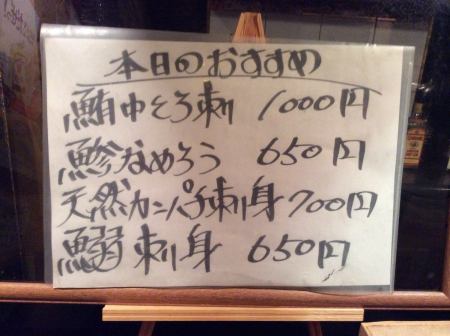 本日のおすすめ
鮪中とろ刺 1000円
鯵なめろう 650円
天然カンパチ刺身 700円
鰯刺身 650円